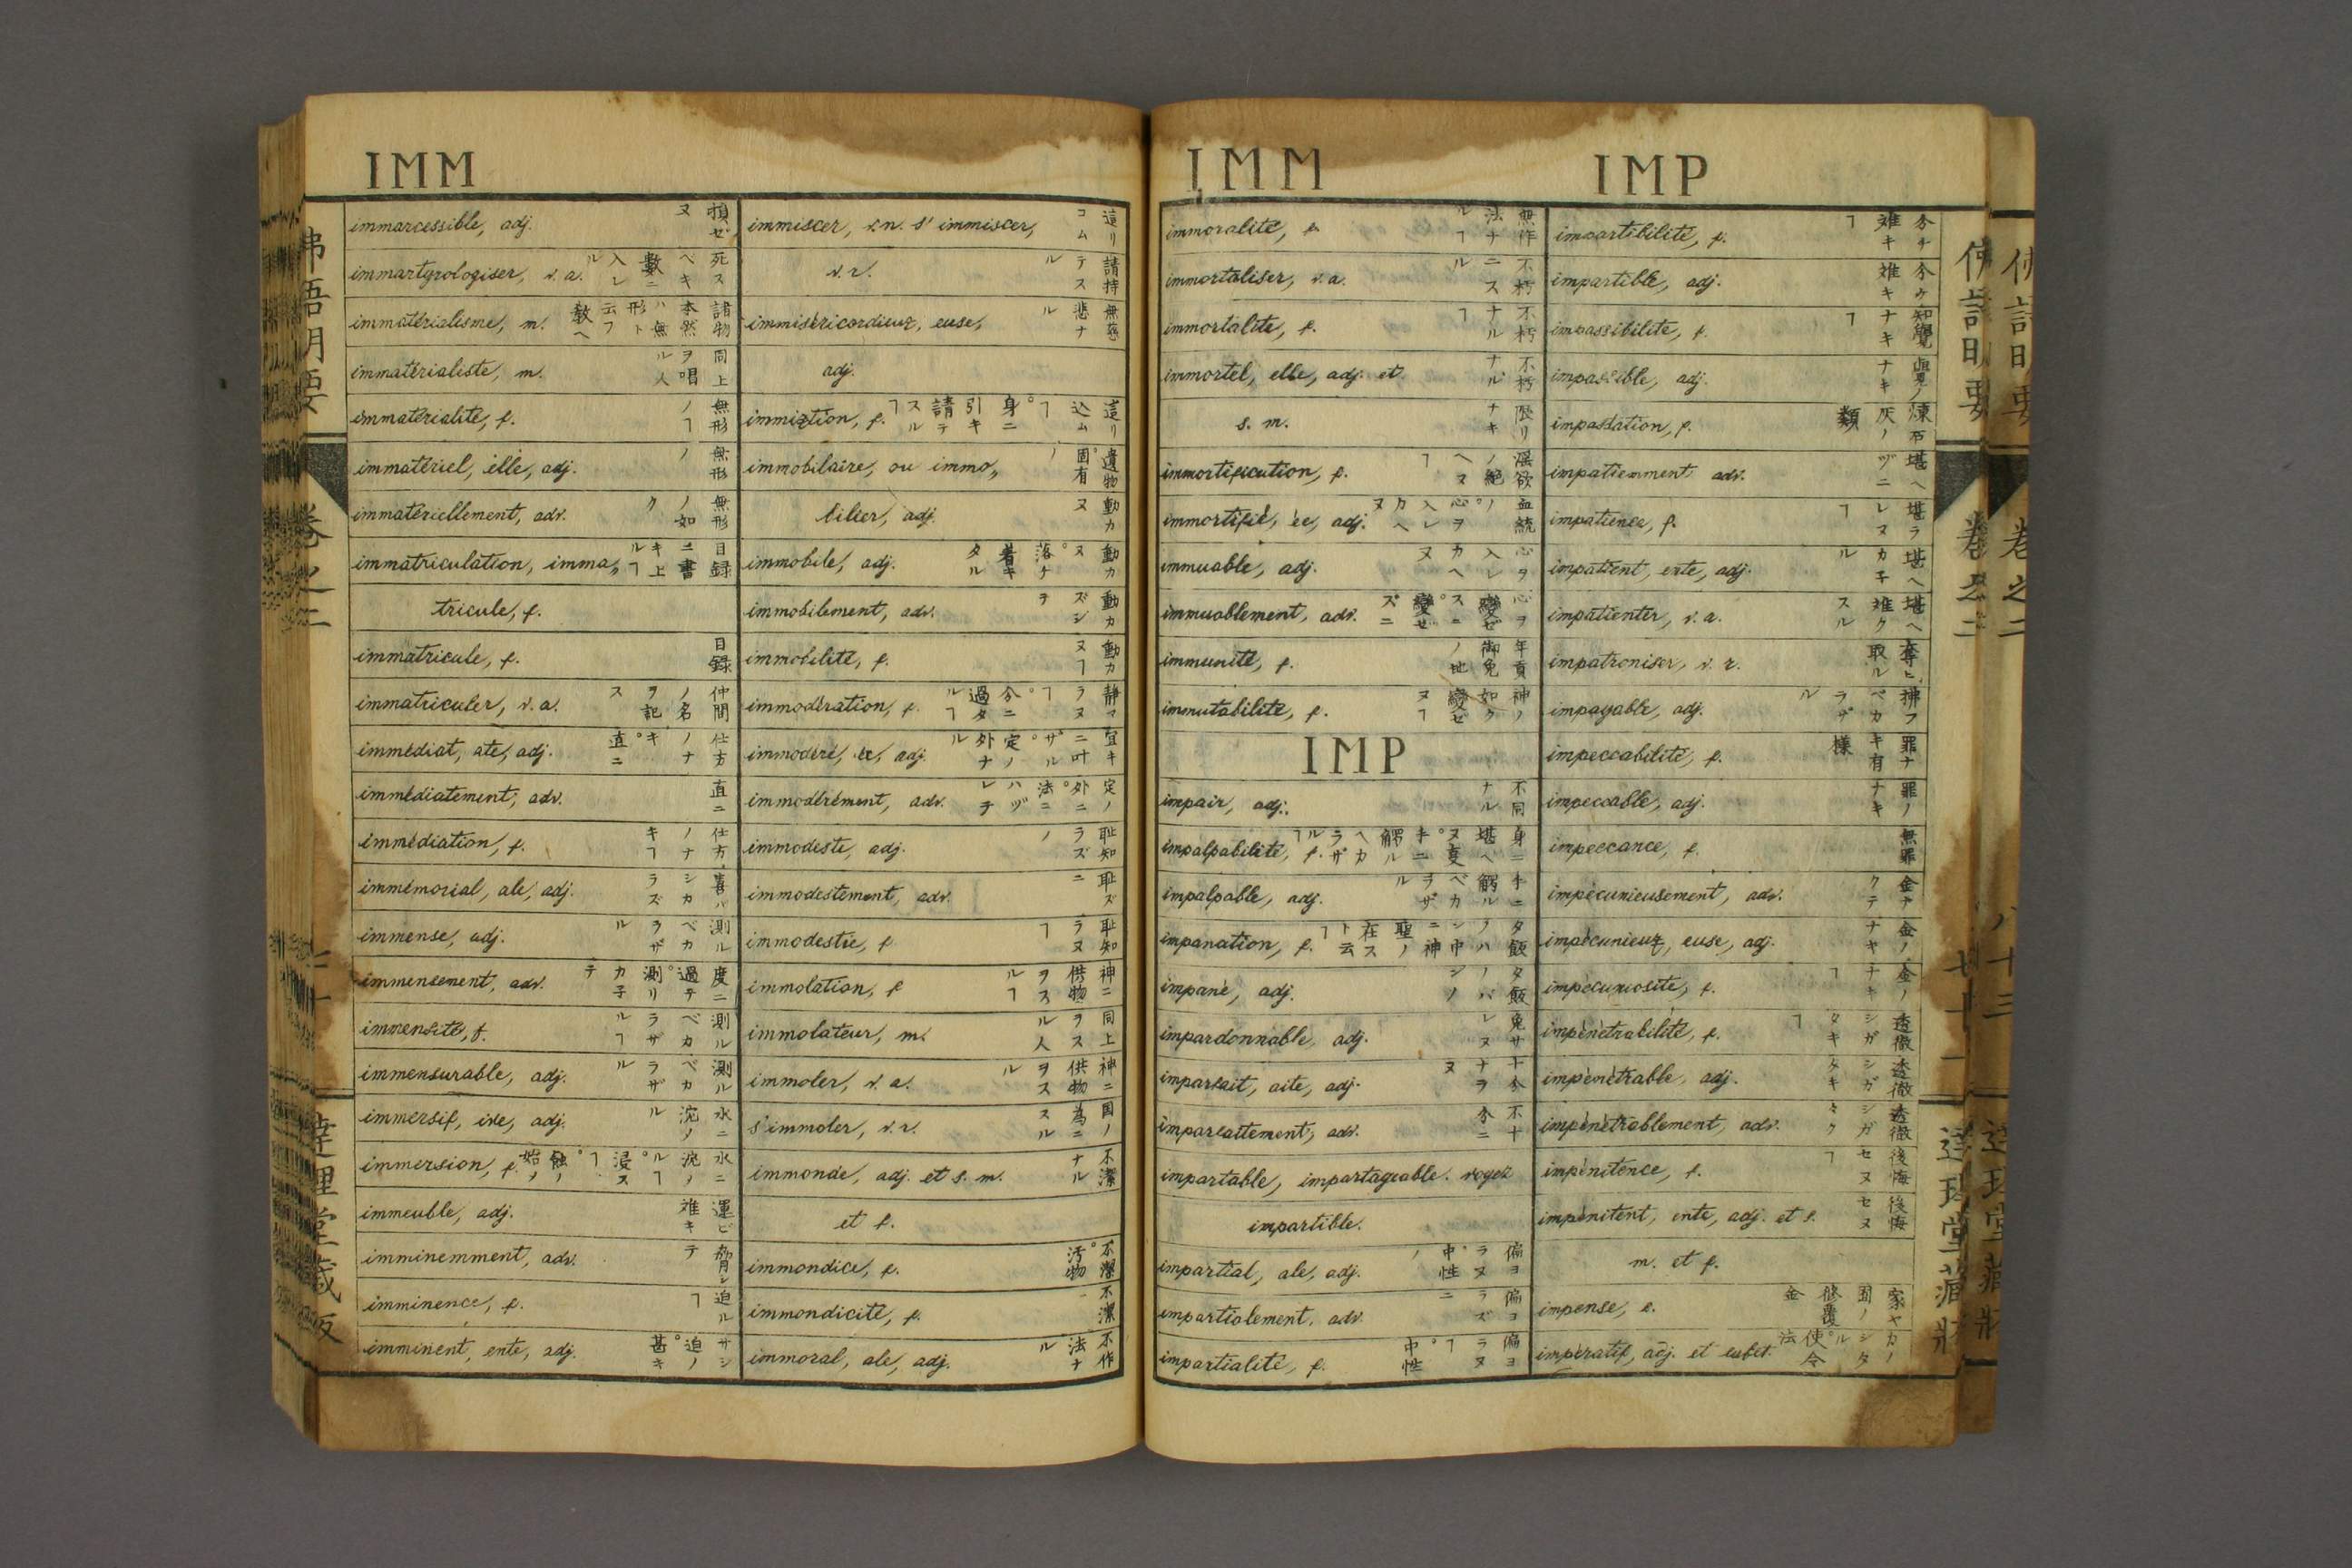 IMM
immarcessible, adj. 損ゼヌ
immartyrologiser, v. a. 死スベキ數ニ入レル
immatérialisme, m. 諸物本然ハ無形ト云フ敎へ
immatérialiste, m. 同上ヲ唱ル人
immatérialité, f. 無形ノヿ
immatériel, elle, adj. 無形ノ
immatériellement, adv. 無形ノ如ク
immatriculation, imma„ 目録ニ書キ上ルヿ
tricule, f.
immatricule, f. 目録
immatriculer, v. a. 仲間ノ名ヲ記ス
immédiat, ate, adj. 仕方ノナキ。直ニ
immédiatement, adv. 直ニ
immédiation, f. 仕方ノナキヿ
immémorial, ale, adj.
immense, adj. 測ルベカラザル
immensement, adv. 度ニ過テ。測リカ子テ
immensité, f. 測ルベカラザルヿ
immensurable, adj. 測ルベカラザル
immersif, ive, adj. 水ニ
immersion, f.
immeuble, adj. 運ビ難キ
imminemment, adv.
imminence, f. 迫ルヿ
imminent, ente, adj. サシ迫ノ。甚キ
immiscer, v. n. s' immiscer, 這リコム
v. r. 請持テスル
immiséricordieux, euse, 無慈悲ナル
adj.
immixtion, f. 這リ込ムヿ。身ニ引キ請テスルヿ
immobilaire, ou immo„ 遺物。固有ノ
bilier, adj. 動カヌ
immobile, adj. 動カヌ。落チ着キタル
immobilement, adv. 動カズシテ
immobilité, f. 動カヌヿ
immodération, f. 静マラヌヿ。分ニ過タルヿ
immodéré, ée, adj. 宜キニ叶ザル。定ノ外ナル
immodérément, adv. 定ノ外ニ。法ニハヅレテ
immodeste, adj. 耻知ラズノ
immodestement, adv. 耻ズニ
immodestie, f. 耻知ラヌヿ
immolation, f. 神ニ供物ヲスルヿ
immolateur, m. 同上ヲスル人
immoler, v. a. 神ニ供物ヲスル
s' immoler, v. r. 国ノ為ニスル
immonde, adj. et s. m. 不潔ナル
et f.
immondice, f. 不潔。汚物
immondicité, f. 不潔
immoral, ale, adj. 不作法ナル
IMM
IMP
immoralité, f. 無作法ナルヿ
immortaliser, v. a. 不朽ニスル
immortalité, f. 不朽ナルヿ
immortel, elle, adj. et 不朽ナル
s. m. 限リナキ
immortification, f. 淫欲ノ絶ヘヌヿ
immortifié, ée, adj. 血統ノ。心ヲ入レカヘヌ
immuable, adj. 心ヲ入レカヘヌ
immuablement, adv. 心ヲ變ゼスニ。變ゼズニ
immunité, f. 年貢御免ノ地
immutabilité, f. 神ノ如ク變ゼヌヿ
IMP
impair, adj. 不同ナル
impalpabilité, f. 身ニ堪ヘヌ
impalpable, adj. 手ニ觸ルベカラザル
impanation, f.
impané, adj.
impardonnable, adj. 免サレヌ
imparfait, aite, adj. 十分ナラヌ
imparfaitement, adv. 不十分ニ
impartable, impartageable. voyez
impartible.
impartial, ale, adj. 偏ヨラヌ。中性ノ
impartialement, adv. 偏ヨラズニ
impartialité, f. 偏ヨラヌヿ。中性
impartibilité, f. 分チ難キヿ
impartible, adj. 分ケ難キ
impassibilité, f. 知覺ナキヿ
impassible, adj. 覺ノナキ
impastation, f. 煉石灰ノ類
impatiemment adv. 堪ヘヅニ
impatience, f. 堪ラレヌヿ
impatient, ente, adj. 堪ヘカ子ル
impatienter, v. a. 堪ヘ難クスル
impatroniser, v. r. 奪ヒ取ル
impayable, adj. 拂フベカラザル
impeccabilité, f. 罪ナキ有樣
impeccable, adj. 罪ノナキ
impeccance, f. 無罪
impécunieusement, adv. 金ナクテ
impécunieux, euse, adj. 金ノナキ
impécuniosité, f. 金ノナキヿ
impénétrabilité, f. 透徹シガタキヿ
impénétrable, adj. 透徹シガタキ
impénétrablement, adv. 透徹シガタク
impénitence, f. 後悔セヌヿ
impénitent, ente, adj. et s. 後悔セヌ
m. et f.
impense, f. 家ヤ園ノ修覆金
impératif, adj. et subst.
卷之二
達理堂藏版